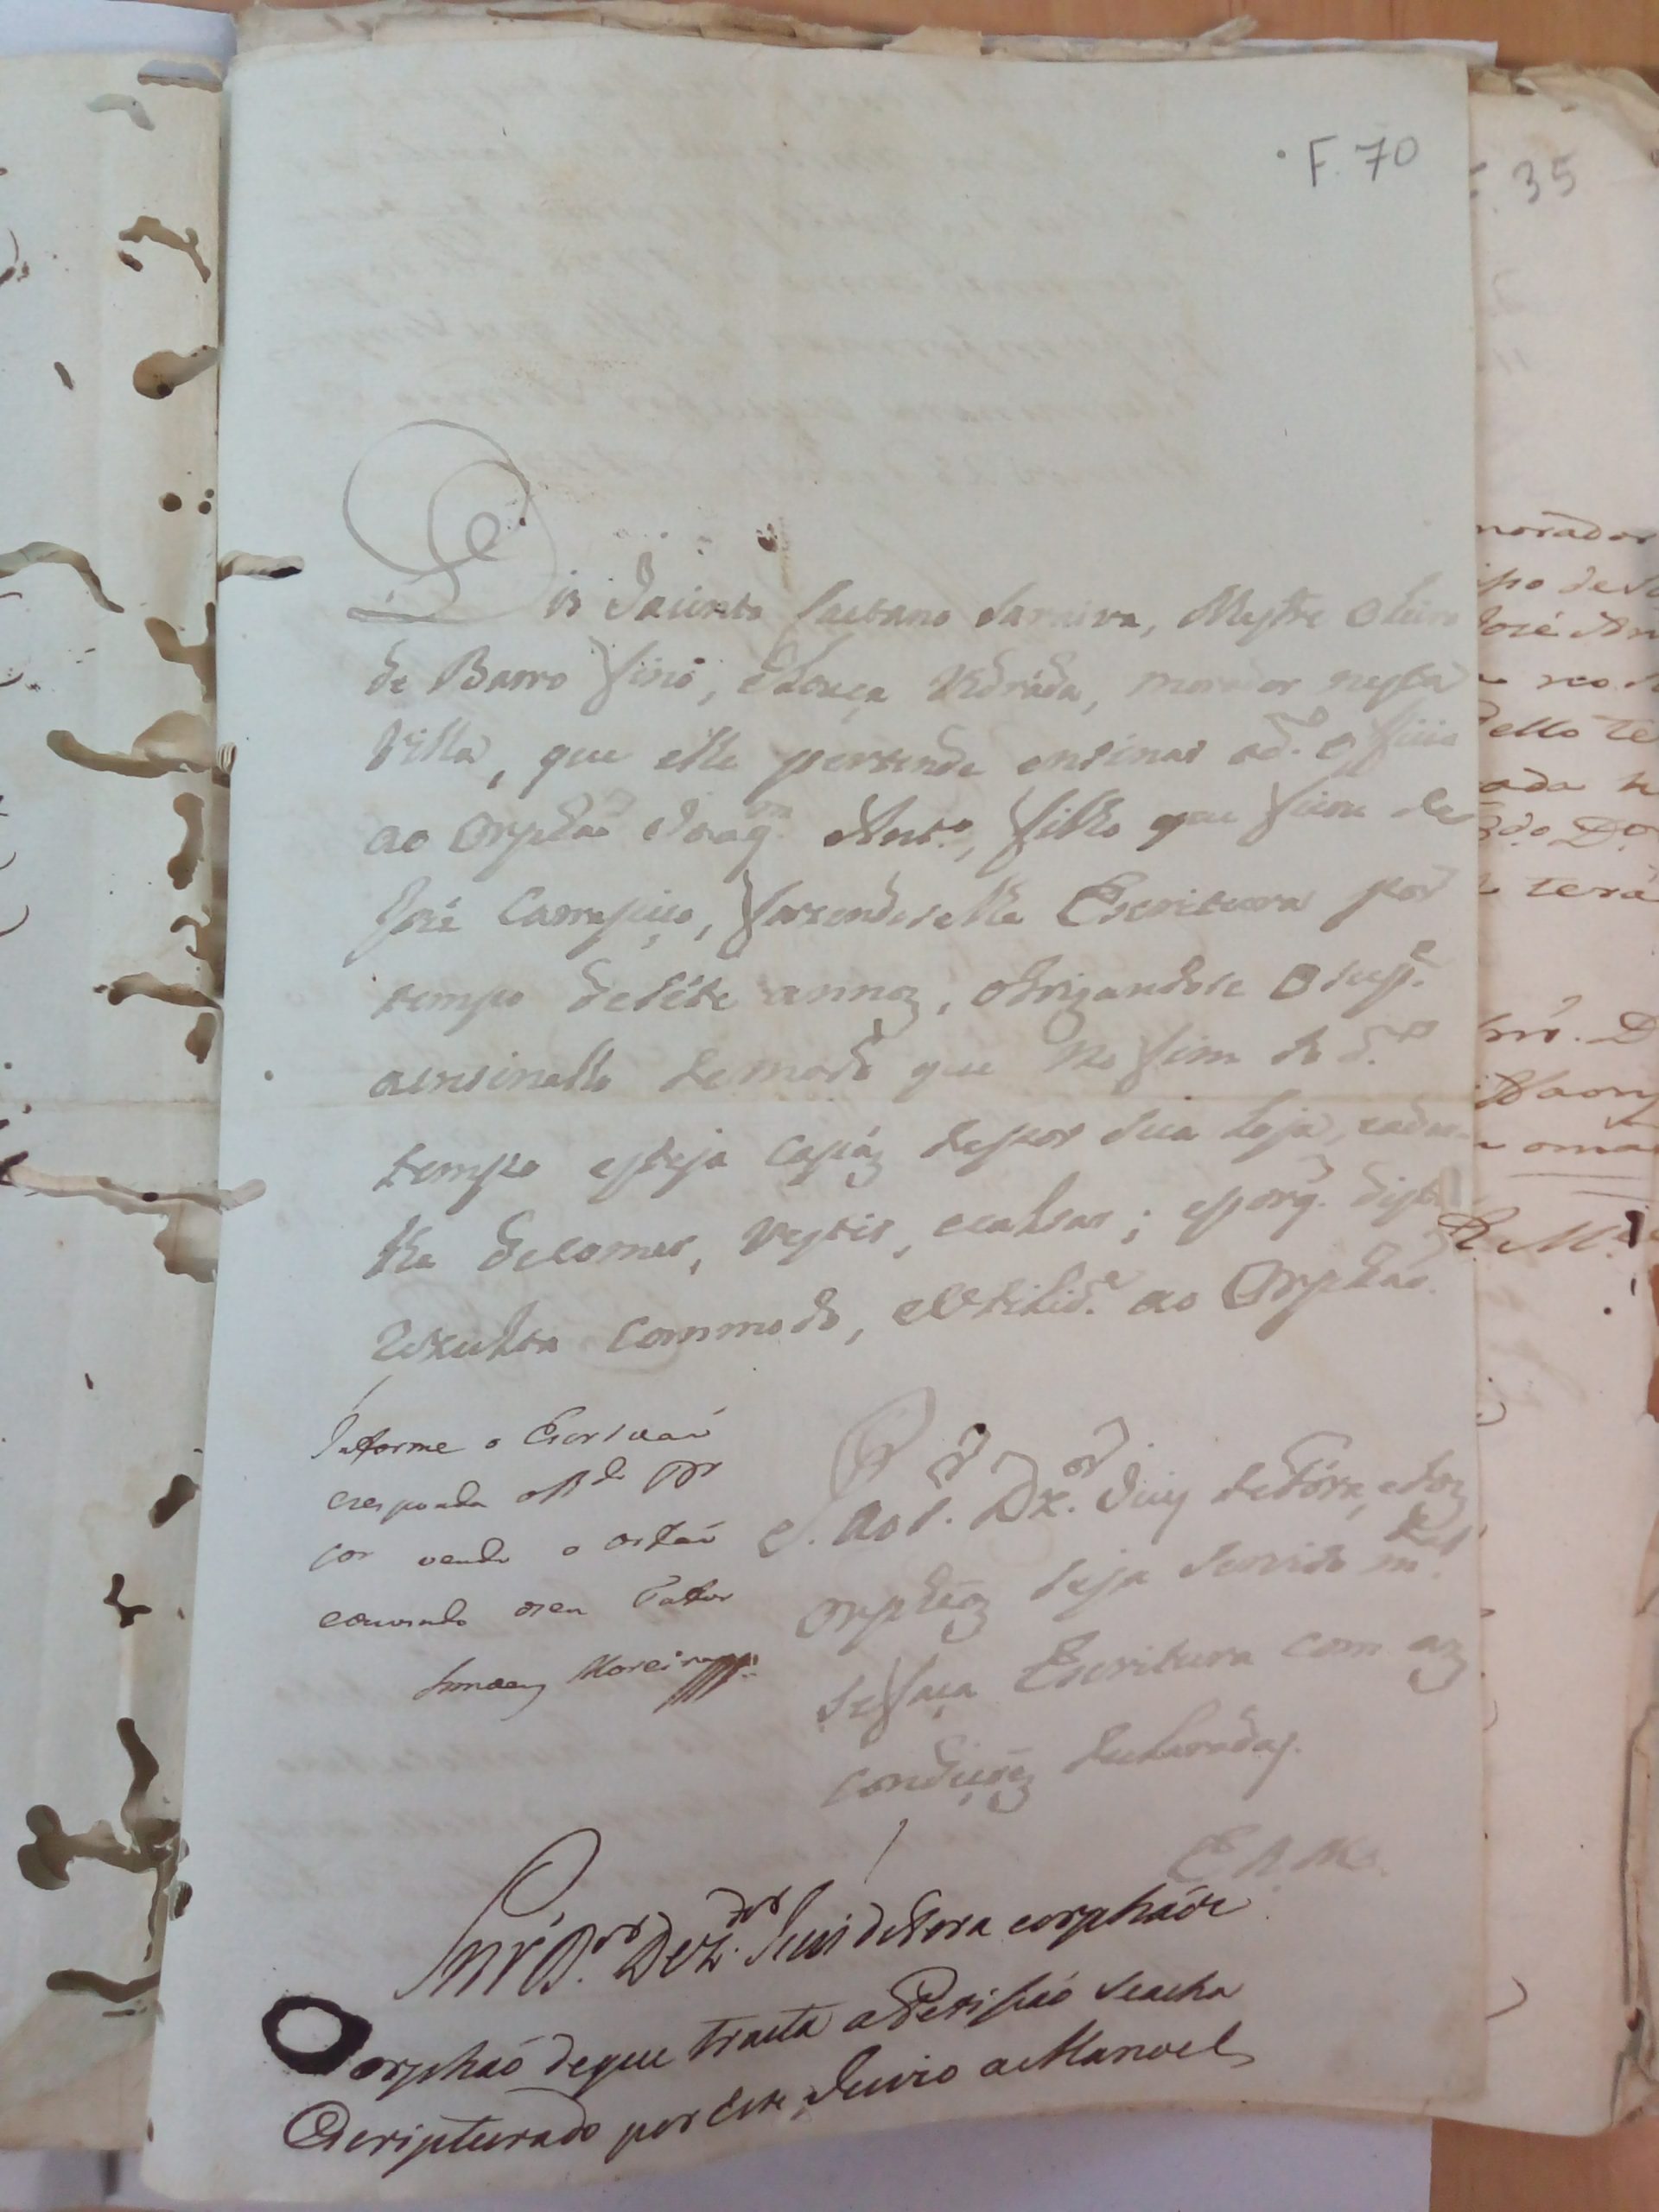 F. 70
F. 35
Dis Jacinto Caetano Saraiva, Mestre Oleiro
de Barro fino, e Louça Vidráda, morador nesta
Villa, que elle pertende ensinar o d.º Officio
ao Orphaõ Joaq.m Ant.º, filho que ficou de
José Carrapiço, fazendoselhe Escritura por
tempo de séte annoz, obrigandose O sup.e
a ensinallo de modo que no fim do d.º
tempo esteja capáz de por sua Loja, e adar
lhe de comer, vestir, e calsar; e porq. disto
rezulta commodo, e Utilid.e ao Orphaõ.
Informe o Escrivaõ
e responda o R.do Dr
Cor vendo o orfaõ
e ouvindo o seu Tutor
Moreira
P. ao S.r D.r Juiz de Fóra, e doz
Orphaõz seja Servido m.dar
se faça Escritura com az
condiçoẽz declaradas.
E R M.
Snr D.or Dez.dor Juis de Fora e orphaõs
O orphaõ de que tracta a Petissaõ se acha
Escripturado por este Juizo a Manoel
morador
José An
dello te
ada
terá
R. M.